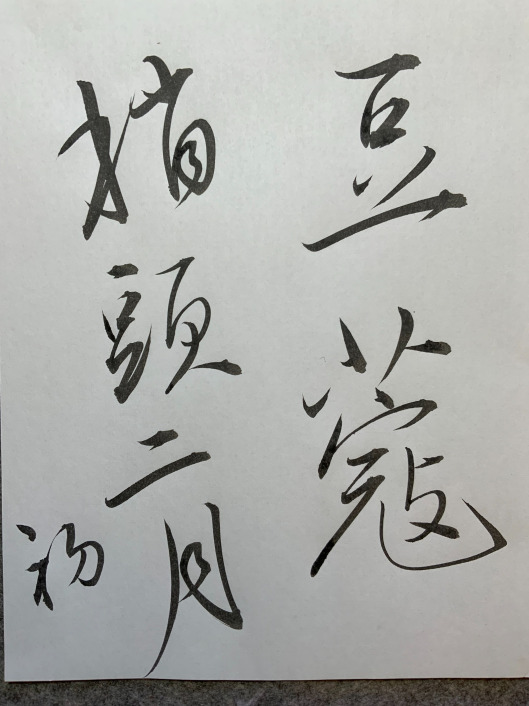 豆蔻
梢頭二月
初